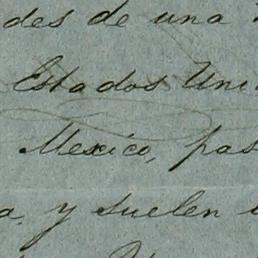 des de una
Estados Uni
Mexico, pas
a, y suelen